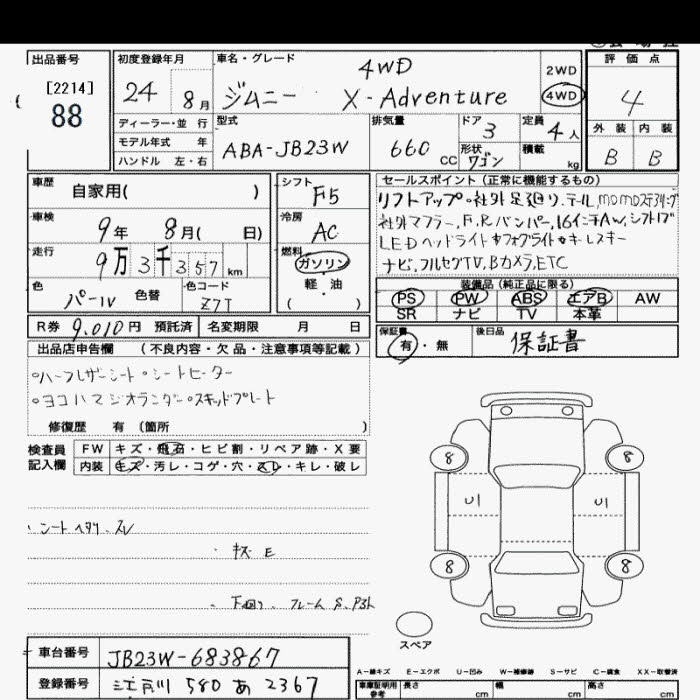 出品番号 初度登録年月 車名・グレード 評価点
4WD 2WD
[2214] 24 8月 ジムニー X-Adventure 4WD 4
88
ディーラー・並行 型式 排気量 ドア 3 定員 4人 外装 内装
モデル年式 年 ABA-JB23W 660CC 形状 ワゴン 積載 kg B B
ハンドル 左・右
車歴 自家用( ) シフト F5 セールスポイント(正常に機能するもの)
リフトアップ・社外足廻り.テール,MOMOステアリング
車検 9年 8月( 日) 冷房 AC 社外マフラー,F,Rバンパー,16インチAW,シフトノブ
LEDヘッドライト&フォグライト&キーレスキー
走行 9万3千357km 燃料 ガソリン 軽油 ( ) ナビ,フルセグTV,Bカメラ,ETC
色 パール 色替 色コード Z7T 装備品(純正品に限る)
PS PW ABS エアB AW
SR ナビ TV 本革
R券 9,010円 預託済 名変期限 月 日 保証書 有・無 後日品 保証書
出品店申告欄 (不良内容・欠品・注意事項等記載)
○ハーフレザーシート○シートヒーター
○ヨコハマジオランダー○スキッドプレート
修復歴 有 (箇所 )
検査員記入欄 FW キズ・飛石・ヒビ割・リペア跡・X要
内装 キズ・汚レ・コゲ・穴・スレ・キレ・破レ
8 8
U1 U1
・シートヘタリ.スレ
・キズE
8 8
・下廻り.フレームS.P3ト
スペア
車台番号 JB23W-683867
登録番号 江戸川 580 あ 2367
A-線キズ E-エクボ U-凹み W-補修跡 S-サビ C-腐食 XX-取替済
車庫証明用参考 長さ cm 幅 cm 高さ cm